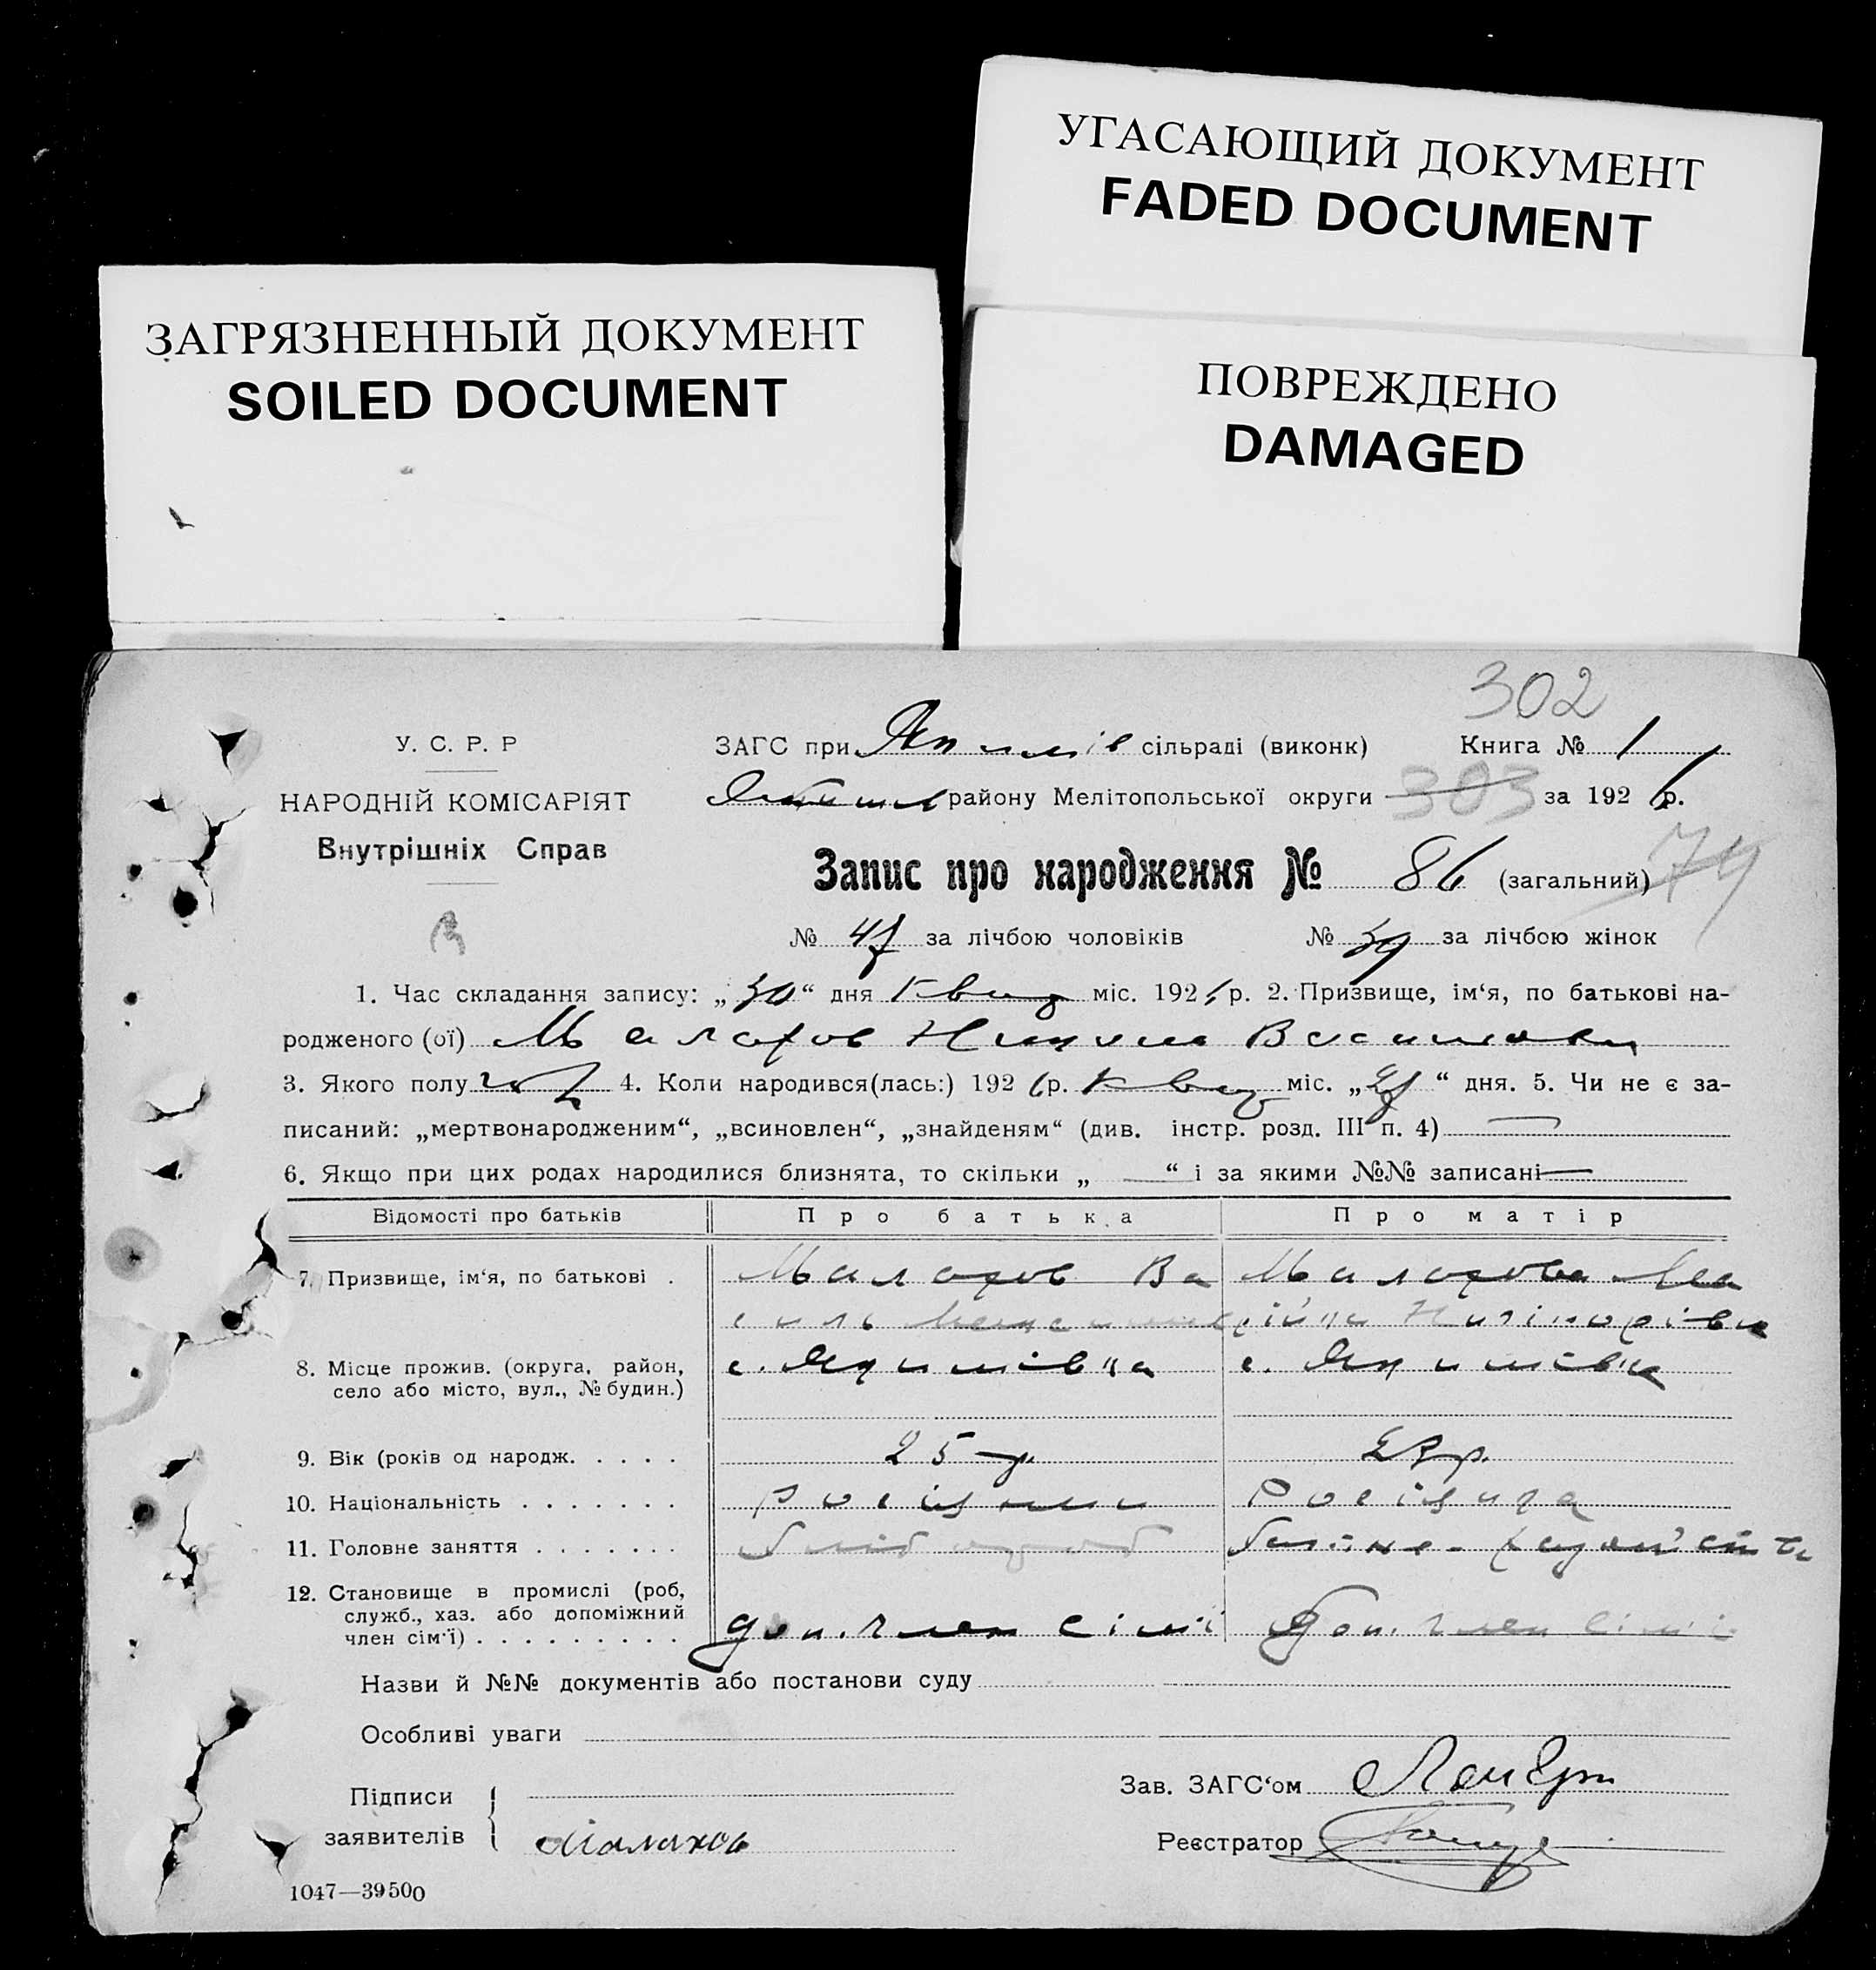 УГАСАЮЩИЙ ДОКУМЕНТ
FADED DOCUMENT
ЗАГРЯЗНЕННЫЙ ДОКУМЕНТ
SOILED DOCUMENT
ПОВРЕЖДЕНО
DAMAGED
302
У. С. Р. Р
ЗАГС при сільраді (виконк) Книга № 1
НАРОДНІЙ КОМІСАРІЯТ
району Мелітопольської округи 303 за 192 6 р.
Внутрішніх Справ
Запис про народження № 86 (загальний) 74
№ 47 за лічбою чоловіків № 39 за лічбою жінок
1. Час складання запису: „30“ дня квіт міс. 1926 р. 2. Призвище, ім‘я, по батькові на-
родженого (ої) Малахов
3. Якого полу чол 4. Коли народився(лась:) 192 6 р. квіт міс. „ “ дня. 5. Чи не є за-
писаний: „мертвонародженим“, „всиновлен“, „знайденям“ (див. інстр. розд. III п. 4)
6. Якщо при цих родах народилися близнята, то скільки „ “ і за якими №№ записані
Відомості про батьків Про батька Про матір
7. Призвище, ім‘я, по батькові . Малахов Ва Малахова Ма
силь рійка
8. Місце прожив. (округа, район, с. Якимівка с. Якимівка
село або місто, вул., № будин.)
9. Вік (років од народж. . . . . 25 р. р.
10. Національність . . . . . . . Росіянин Росіянка
11. Головне заняття . . . . . . . хлібороб
12. Становище в промислі (роб,
служб., хаз. або допоміжний
член сім‘ї) . . . . . . . . . доп. член сім'ї доп. член сім'ї
Назви й №№ документів або постанови суду
Особливі уваги
Зав. ЗАГС‘ом
Підписи
заявителів Малахов
Реєстратор
1047—39500